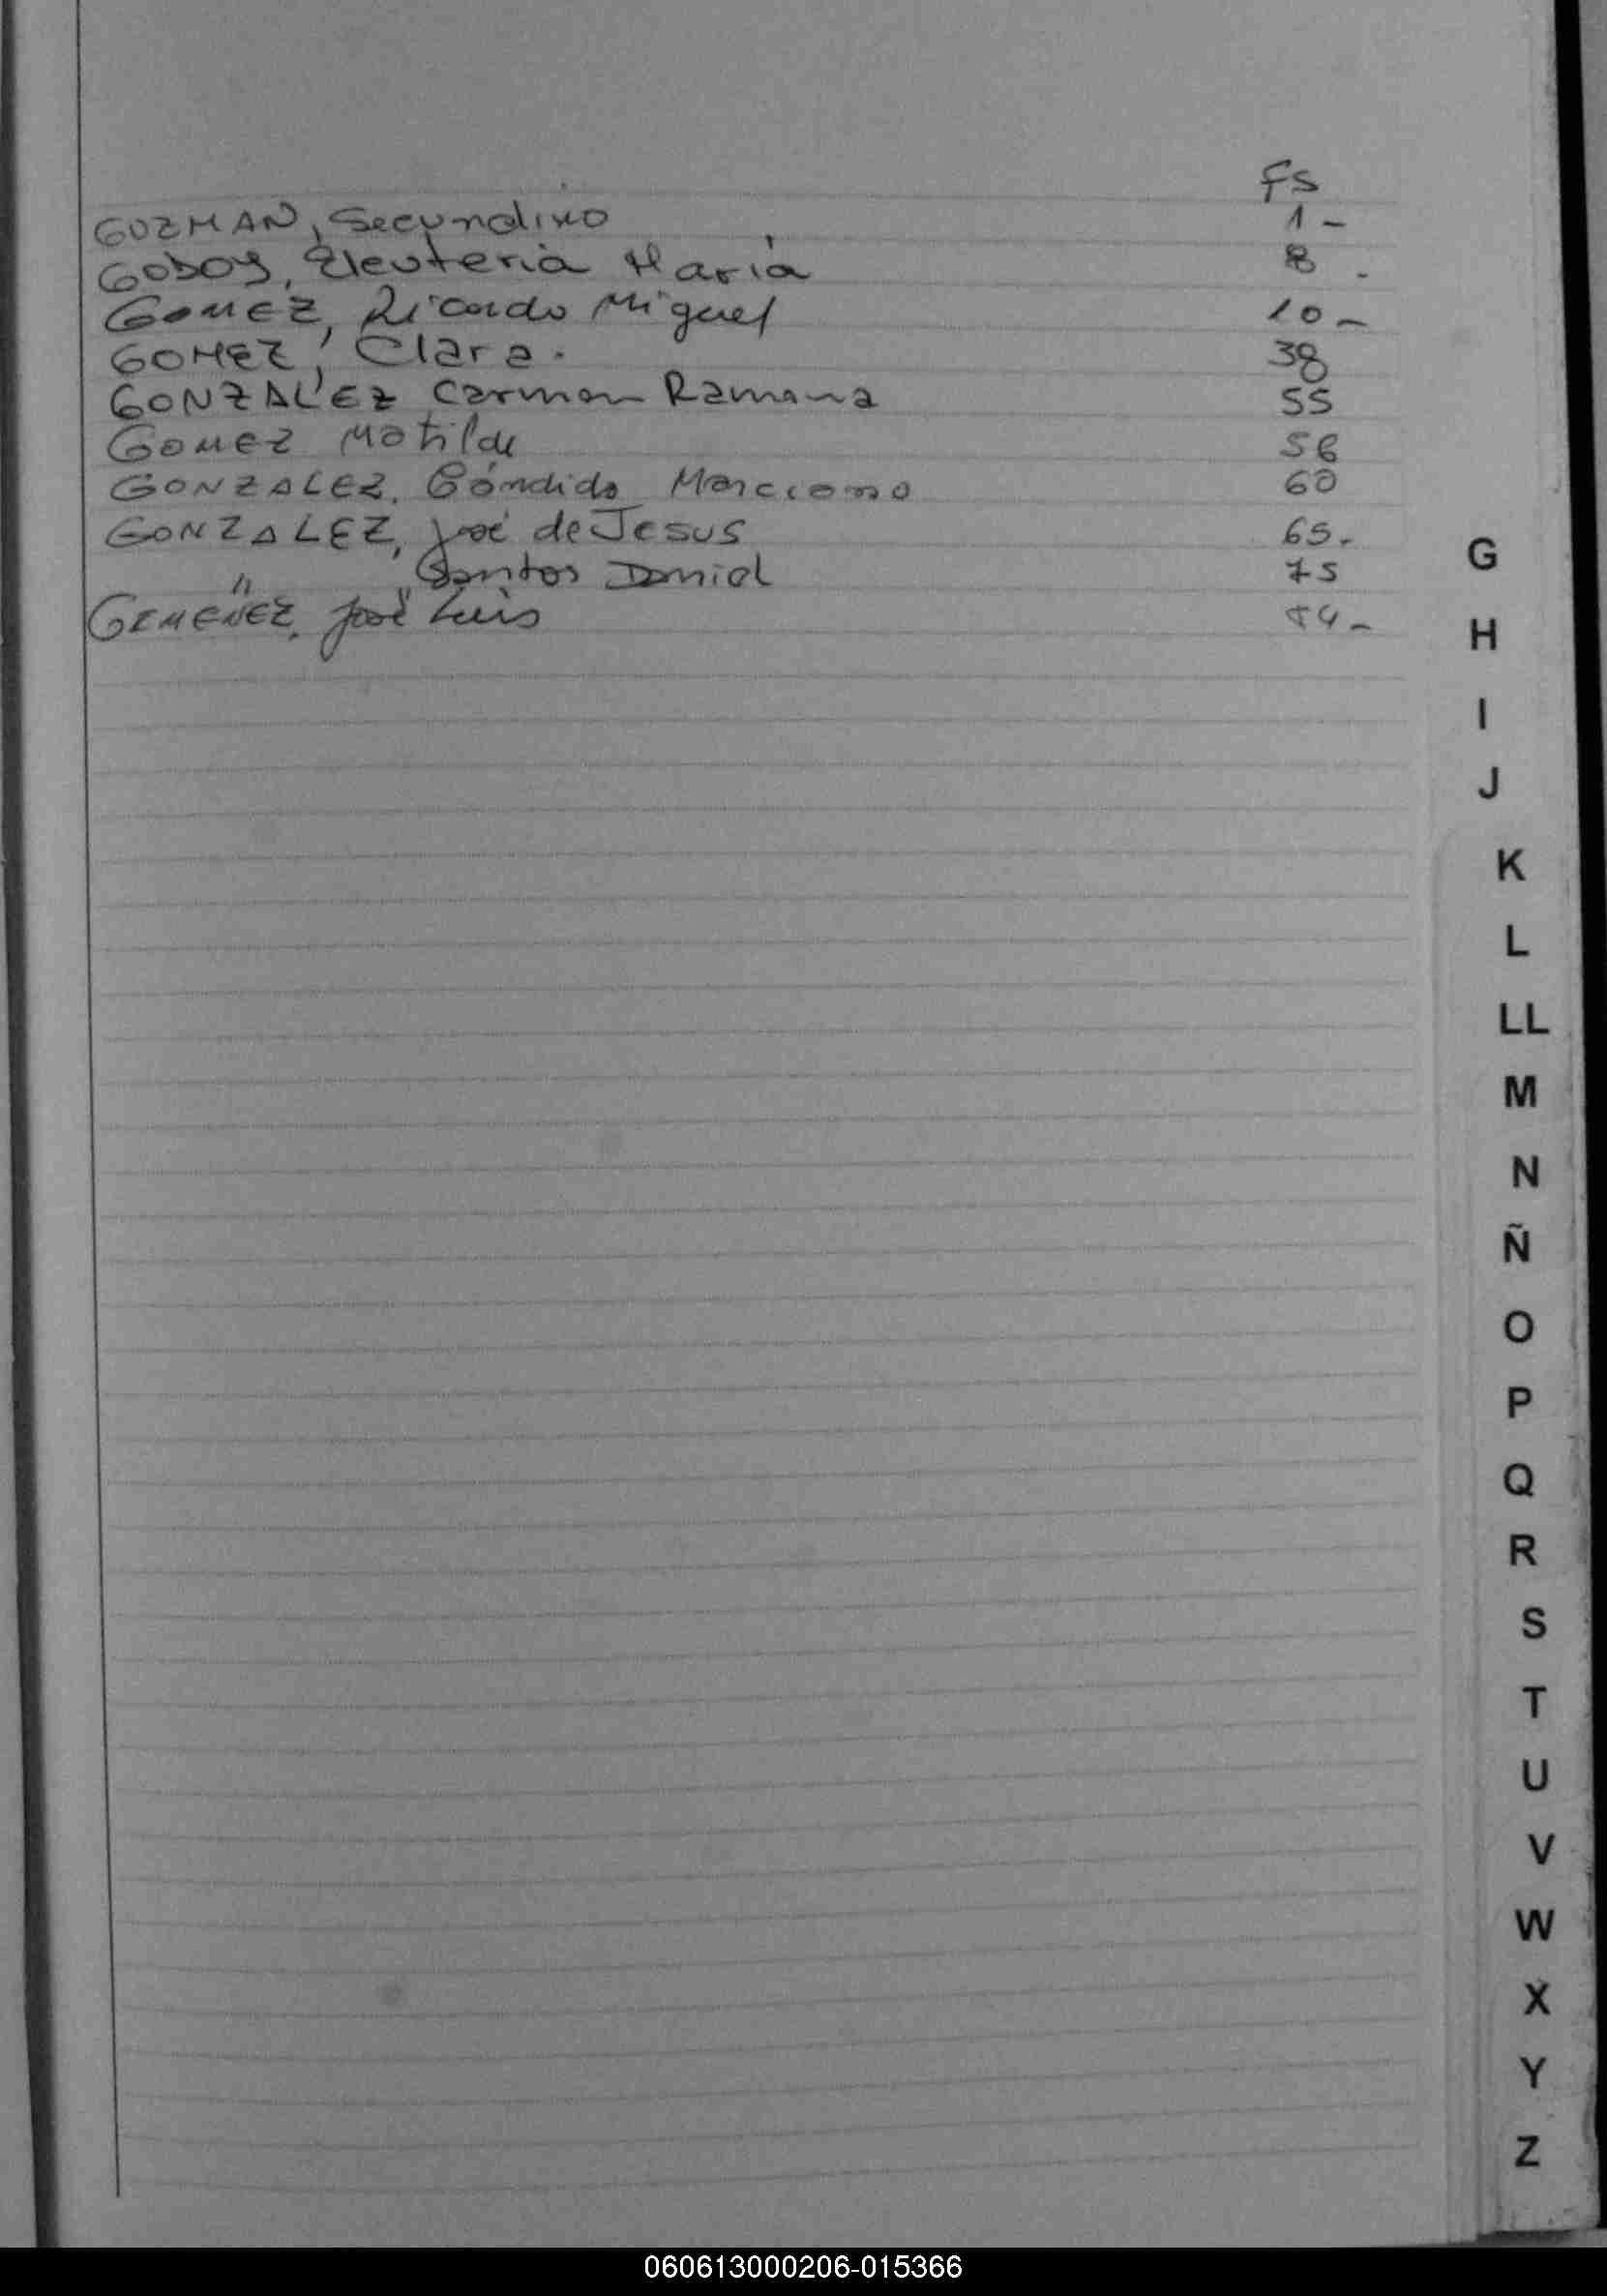 FS
GUZMAN, Secundino 1 -
GODOY, Eleuteria Maria 8 .
GOMEZ, Ricardo Miguel 10 -
GOMEZ, Clara. 38
GONZALEZ Carmen Ramona 55
GOMEZ Matilde 56
GONZALEZ, Cándido Marciano 60
GONZALEZ, José de Jesus 65.
" " Santos Daniel 75
GEMENEZ, José Luis 84 -
G
H
I
J
K
L
LL
M
N
Ñ
O
P
Q
R
S
T
U
V
W
X
Y
Z
060613000206-015366